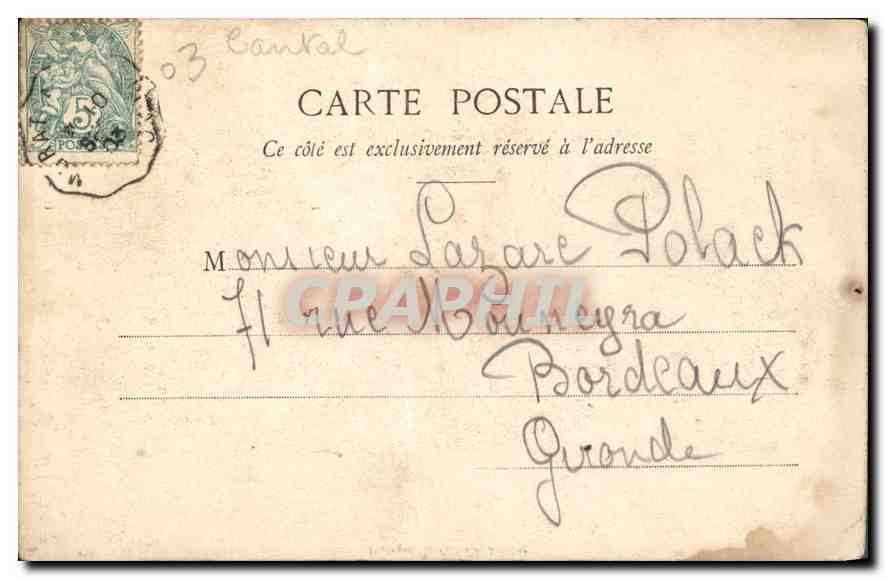 03 Cantal
5
CARTE POSTALE
Ce côté est exclusivement réservé à l'adresse
Monsieur Lazare Polack
CPAPHIL
71 rue Mouneyra
Bordeaux
Gironde